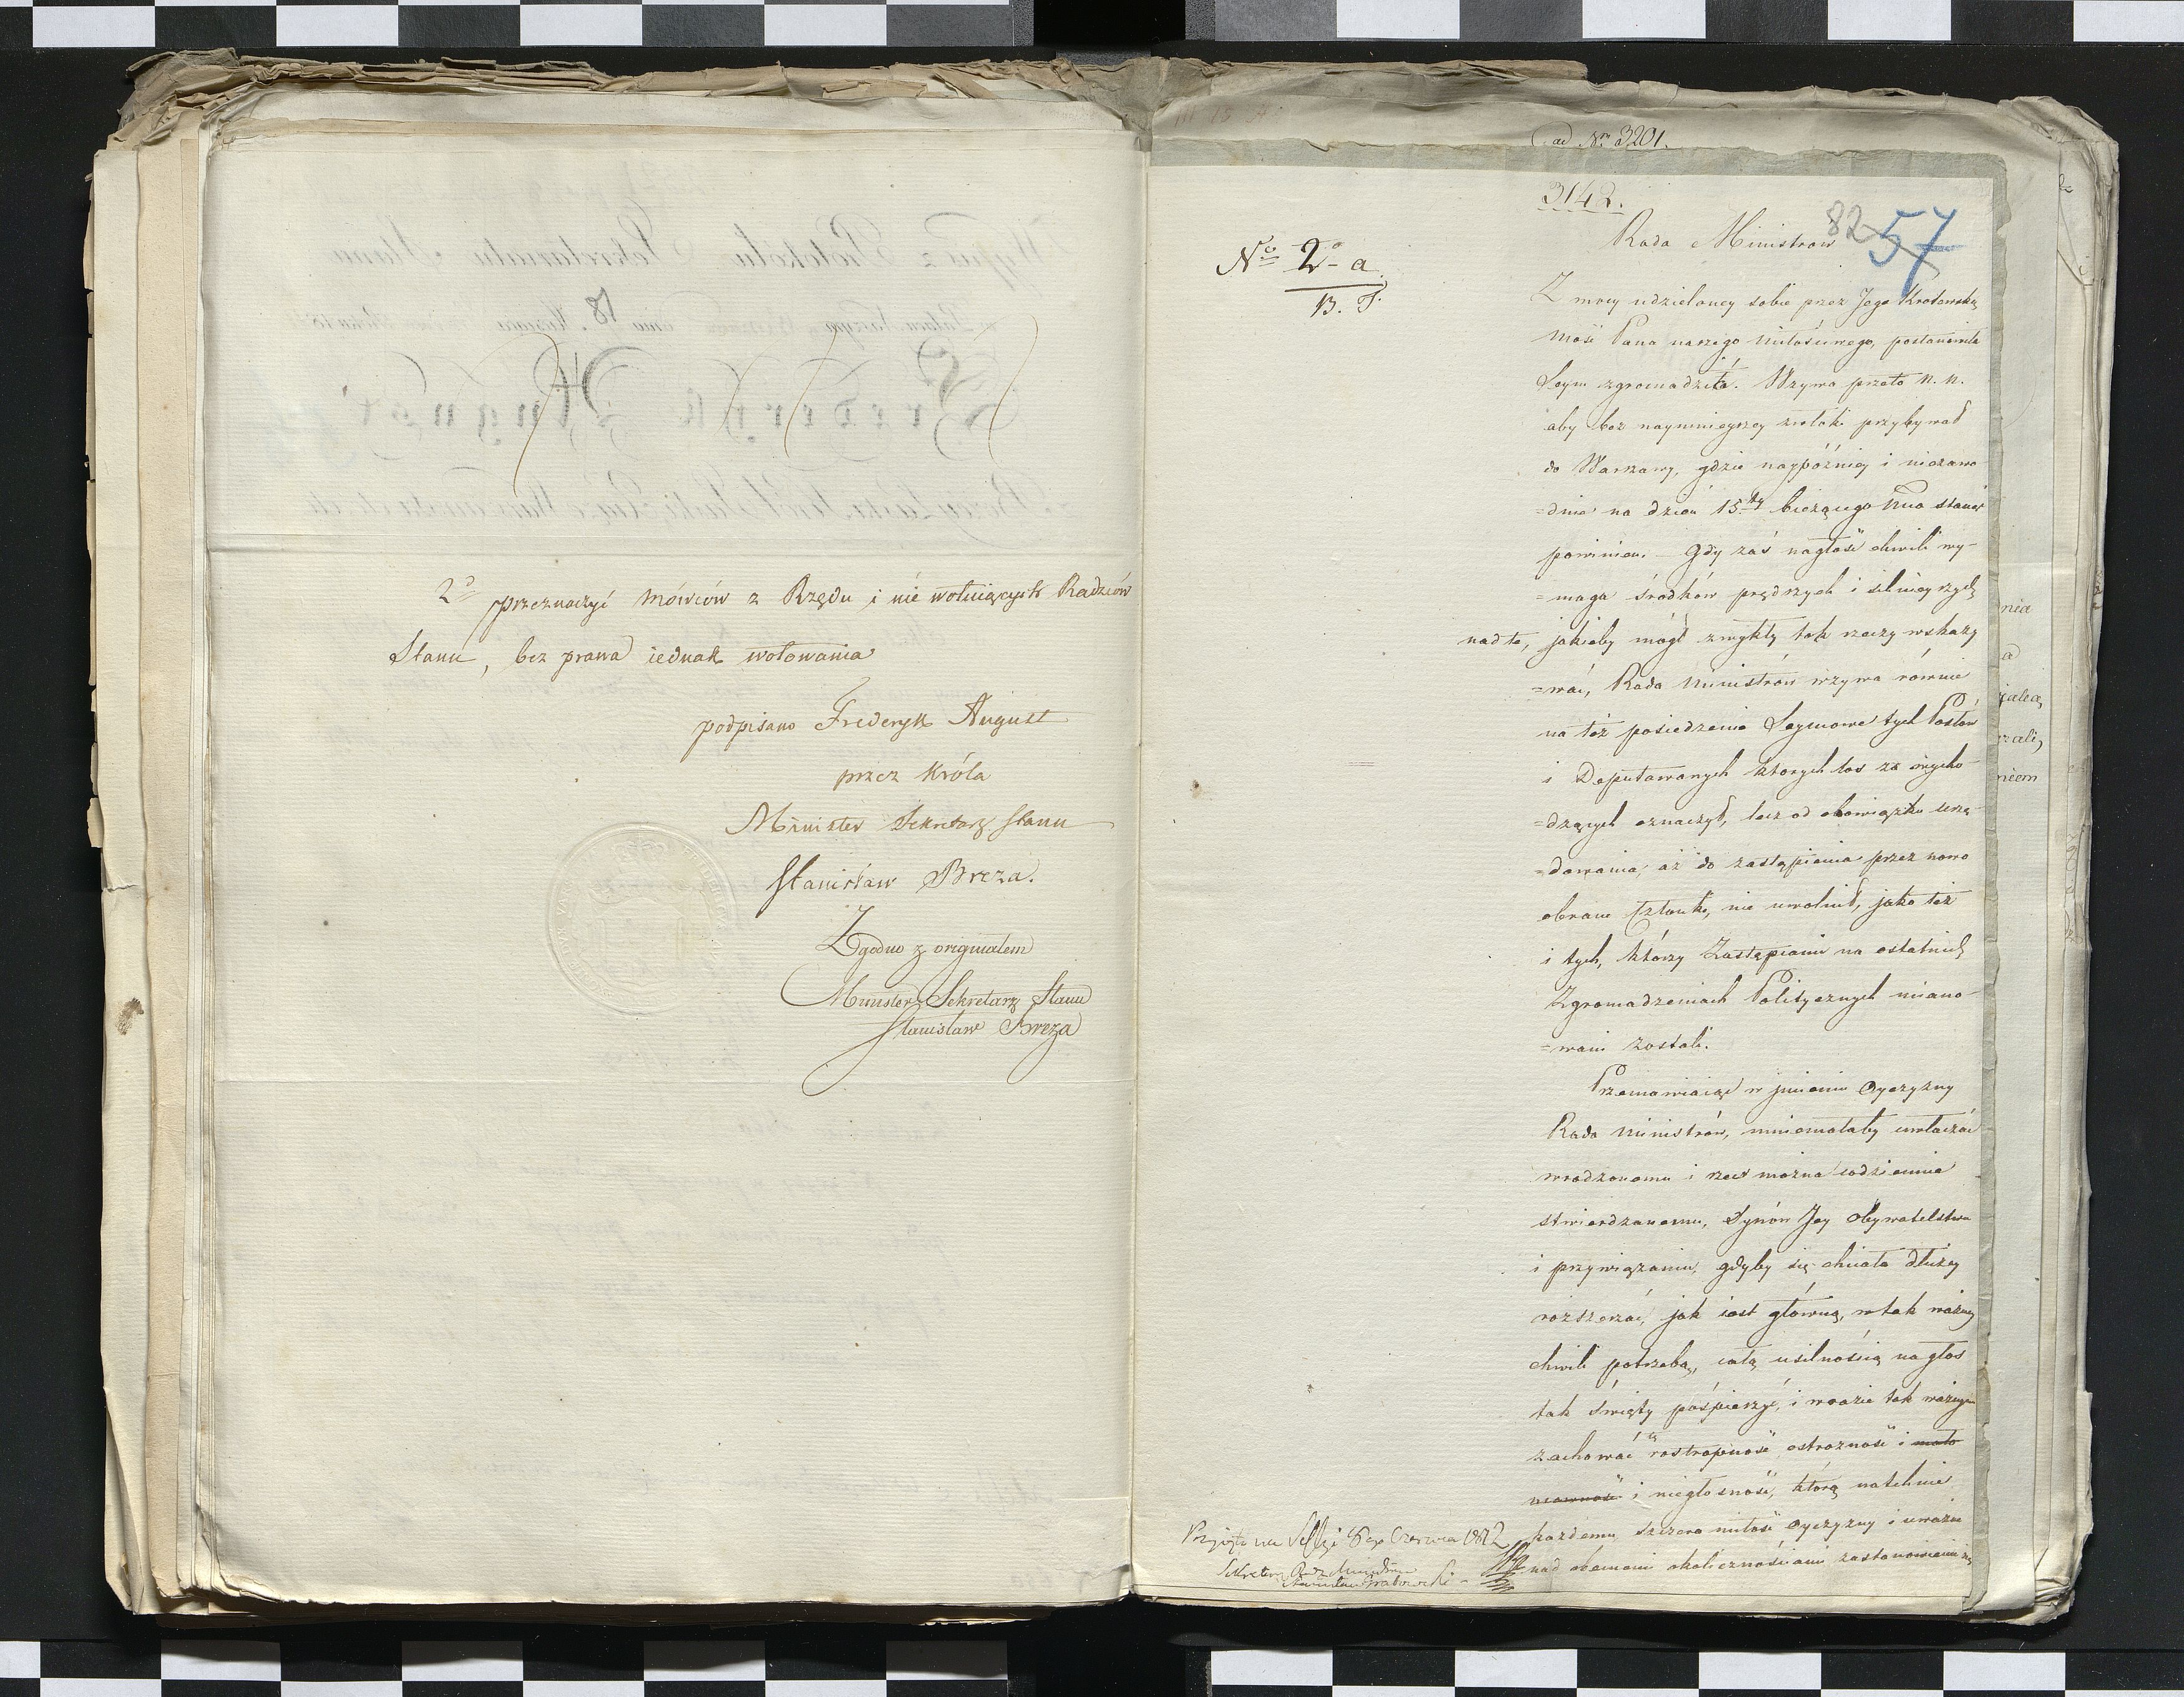 2do przeznaczyć mówców z Rzędu i nie wotuiących Radzców
Stanu, bez prawa iednak wotowania
podpisano Frederyk August
przez Króla
Minister Sekretarz Stanu
Stanisław Breza.
Zgodno z originałem
Minister Sekretarz Stanu
Stanisław Breza
ad Nr 3201.
3142.
82 57
No 2o a
B. J.
Rada Ministrow
Z mocy udzieloney sobie przez Jego Krolewską
Mość Pana naszego Miłościwego, postanowiła
Seym zgromadzić. Wzywa przeto N. N.
aby bez naymnieyszey zwłoki przybywał
do Warszawy, gdzie naypóźniey i niezawo
=dnie na dzień 15.ty bieżącego Mca stanąć
powinien. – Gdy zaś nagłość chwili wy-
=maga środków prędszych i silnieyszych
nad te, jakieby mógł zwykły tok rzeczy wskazy
=wać, Rada Ministrów wzywa równie
na też posiedzenie Seymowe tych Posłów
i Deputowanych których los za wycho-
=dzących oznaczył, lecz od obowiązku urzę
=dowania, aż do zastąpienia przez nowo
obrane Członki, nie uwolnił, jako też
i tych, którzy Zastąpieni na ostatnich
Zgromadzeniach Politycznych miano-
=wani zostali.
Przemawiaiąc w jmieniu Oyczyzny
Rada Ministrów, mniemałaby uwłaczać
wrodzonemu i rzec można codziennie
stwierdzanemu, Synów Jey obywatelstwu
i przywiązaniu, gdyby się chciała dłużey
rozszerzać, jak iest główną, w tak ważney
chwili potrzebą, całą usilnością na głos
tak święty pośpieszyć, i w razie tak ważnym
zachować tę rostropność ostrożność i mało
mowność i niegłosność, którą natchnie
każdemu szczera miłość oyczyzny i uważne
nad obecnemi okolicznościami zastanowienie się
Przyięto na Sessyi 8go Czerwca 1812
Sekretarz Rady Ministrów
Stanisław Grabowski